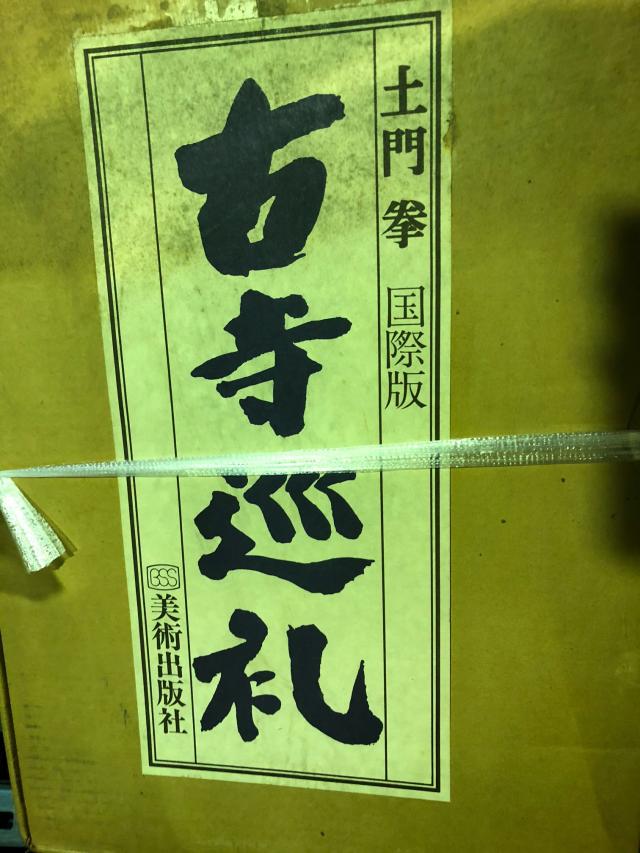 土門拳 国際版
古寺巡礼
BSS 美術出版社